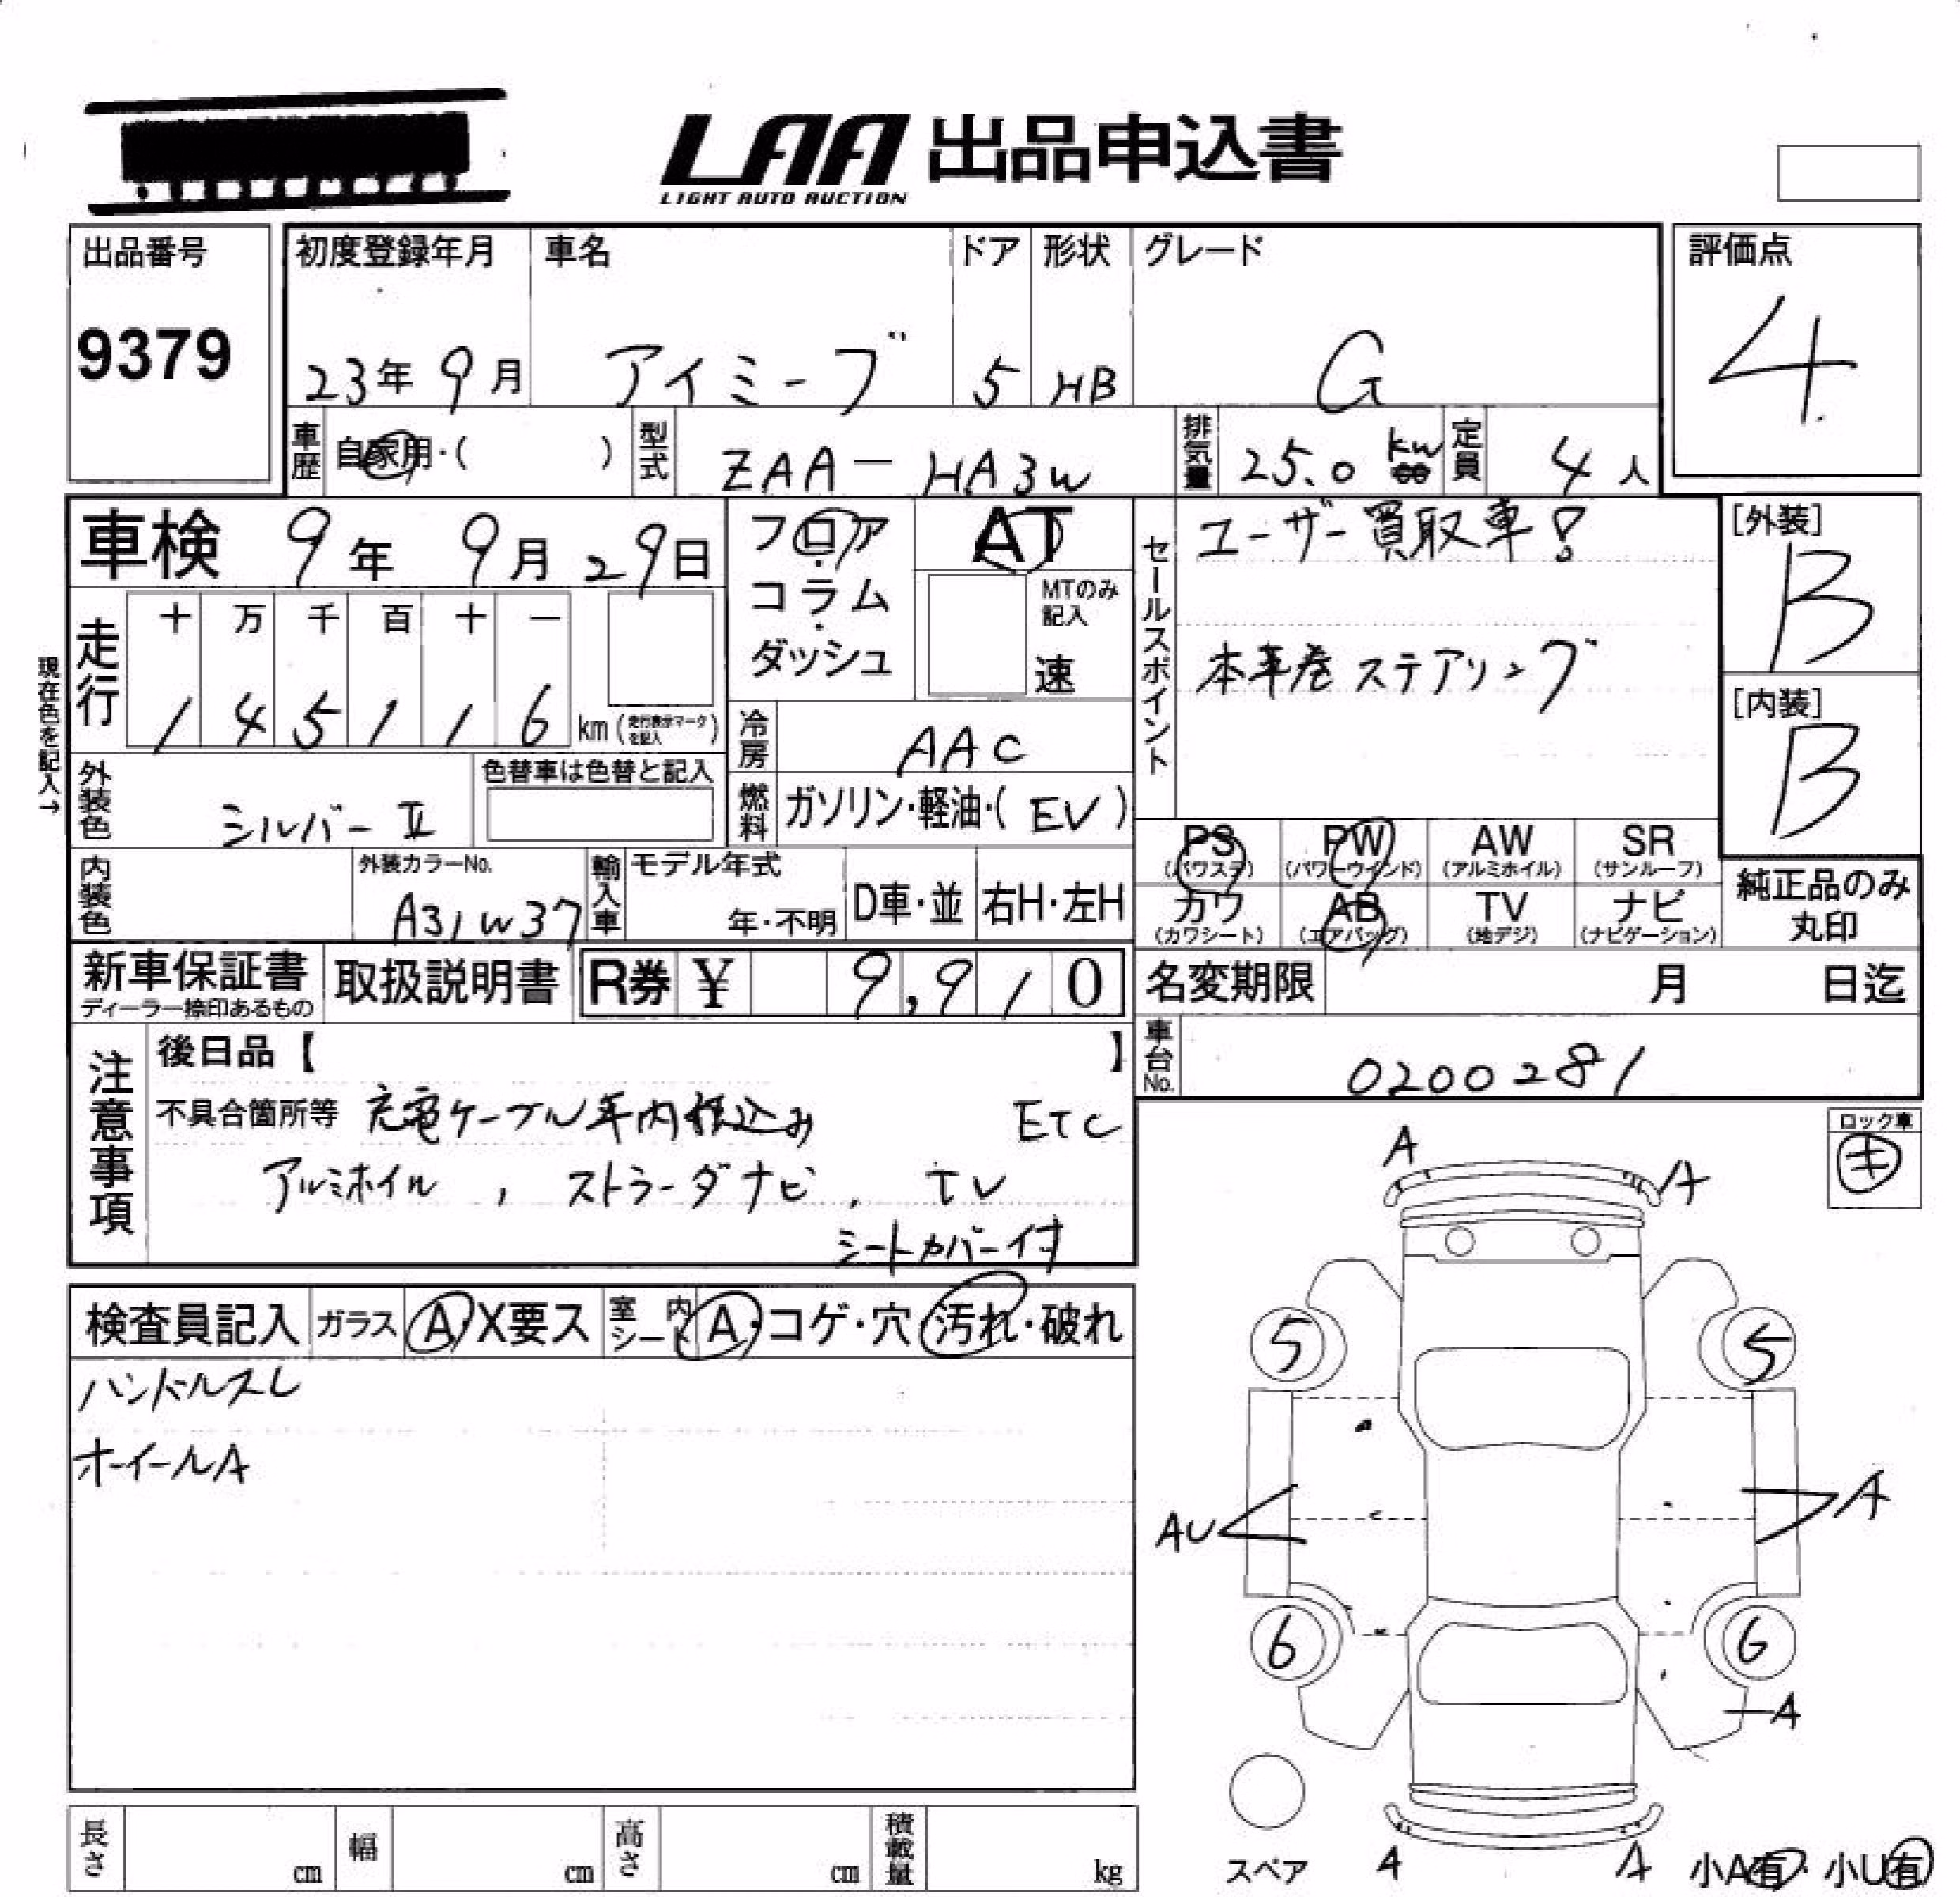 LAA 出品申込書
LIGHT AUTO AUCTION
出品番号
9379
初度登録年月
23年 9月
車名
アイミーブ
ドア
5
形状
HB
グレード
G
評価点
4
車歴 自家用・( )
型式 ZAA-HA3W
排気量 25.0 kw
定員 4人
車検 9年 9月 29日
フロア・コラム・ダッシュ
AT
MTのみ記入
速
セールスポイント
ユーザー買取車!
本革巻ステアリング
[外装]
B
[内装]
B
現在色を記入→
走行
十 万 千 百 十 一
1 4 5 1 1 6 km (走行表示マークを記入)
冷房 AAC
外装色 シルバーⅡ
色替車は色替と記入
燃料 ガソリン・軽油・(EV)
内装色
外装カラーNo.
A31W37
輸入車
モデル年式
年・不明
D車・並
右H・左H
PS (パワステ)
PW (パワーウインド)
AW (アルミホイル)
SR (サンルーフ)
カワ (カワシート)
AB (エアバッグ)
TV (地デジ)
ナビ (ナビゲーション)
純正品のみ丸印
新車保証書
ディーラー捺印あるもの
取扱説明書
R券 ¥ 9,910
名変期限 月 日迄
車台No. 0200281
注意事項
後日品【 】
不具合箇所等 充電ケーブル車内積込み ETC
アルミホイル, ストラーダナビ, TV
シートカバー付
ロック車
キ
検査員記入
ガラス A・X要ス
室内シート A・コゲ・穴・汚れ・破れ
ハンドルスレ
ホイールA
A
A
5
5
AU
A
6
6
A
スペア
A
A
小A有・小U有
長さ cm
幅 cm
高さ cm
積載量 kg